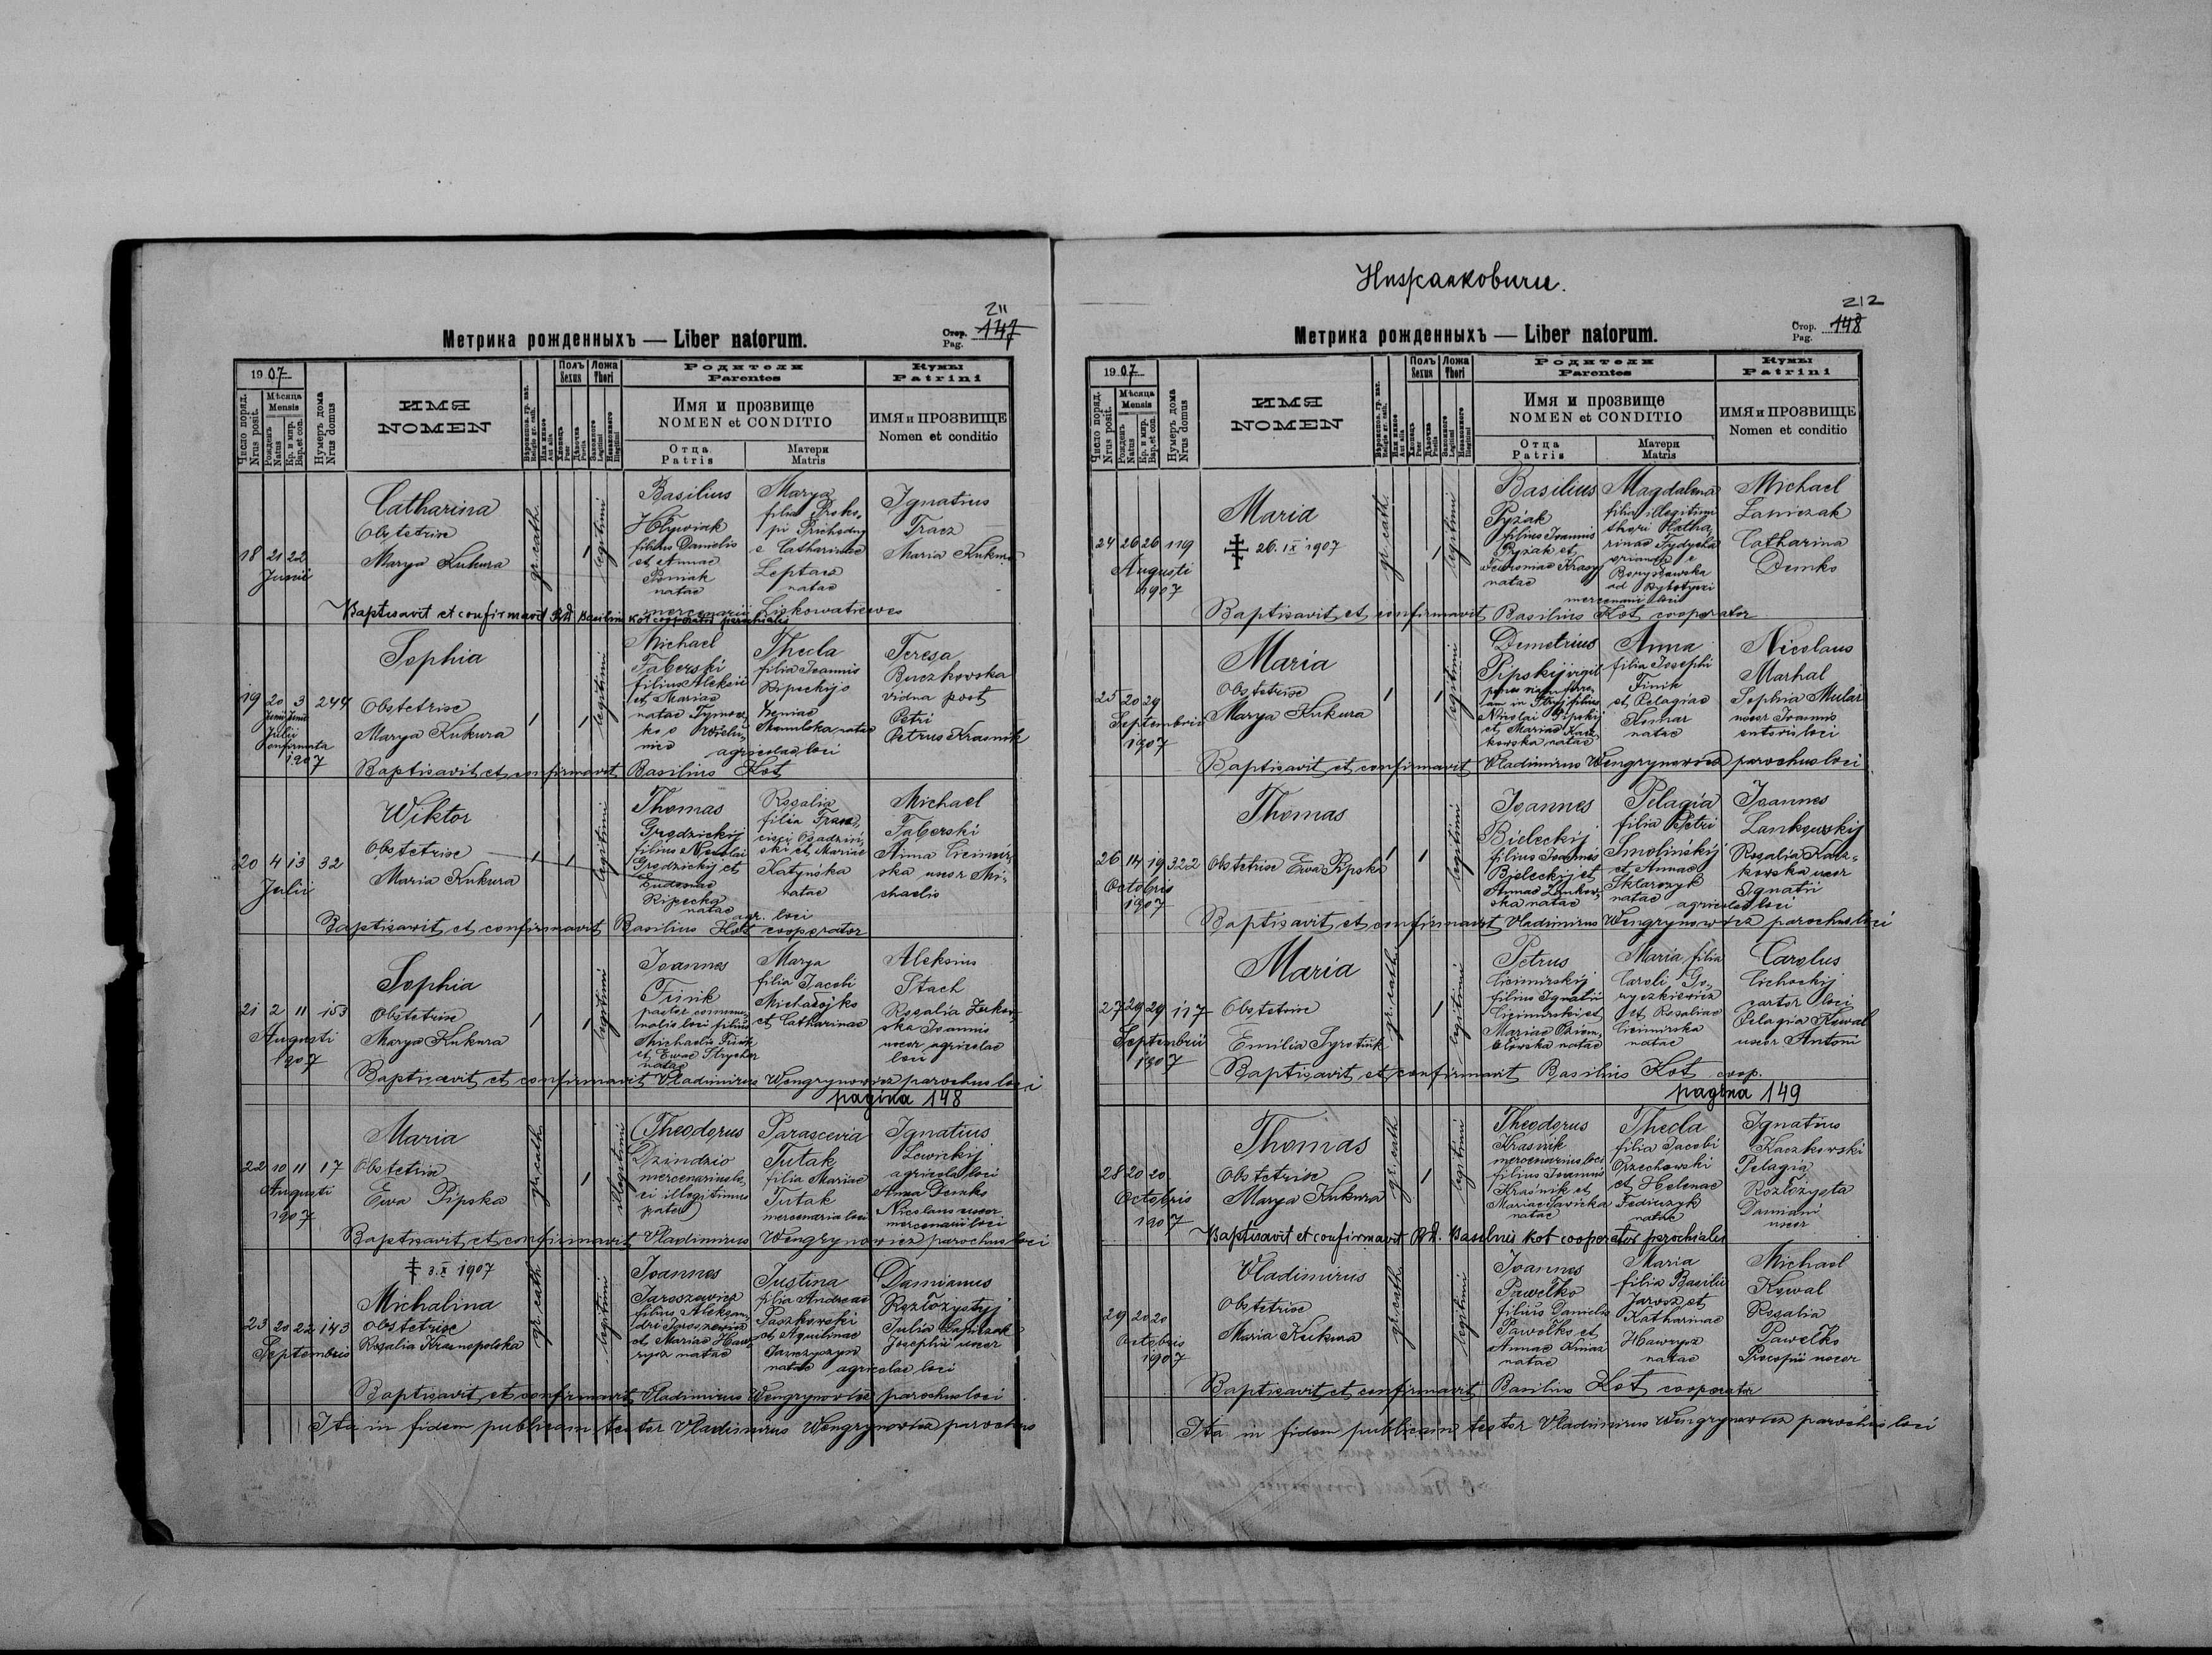 211
Метрика рожденныхъ — Liber natorum.
Стор. Pag. 147
1907
Число поряд. Nrus posit.
Мѣсяца Mensis
Рожденъ Natus
Кр. и мир. Bap. et con.
Нумеръ дома Nrus domus
ИМЯ NOMEN
Вѣроиспов. гр. кат. Religio gr. cath.
Или инное Aut alia
Полъ Sexus
Хлопець Puer
Дѣвочка Puella
Ложа Thori
Законного Legitimi
Незаконного Illegitimi
Родители Parentes
Имя и прозвище
NOMEN et CONDITIO
Отца Patris
Матери Matris
Кумы Patrini
ИМЯ и ПРОЗВИЩЕ
Nomen et conditio
18 21 22 Junii
Catharina
Obstetrix
Marya Kukura
gr. cath.
1
legitimi
Basilius
filius Danielis
et Annae
natae
Marya
filia Proko-
pi Prichodny
e Catharinae
Leptac
natae
mercenarii Liskowatienses
Ignatius
Tracz
Maria Kukura
Baptisavit et confirmavit Rd. Basilius Kot cooperator parochialis
19 20 3 244
Junii Junii
Julii
confirmata
1907
Sophia
Obstetrix
Marya Kukura
1 1
legitimi
Michael
Faberski
filius Aleksii
et Mariae
natae
Thecla
filia Joannis
Ripeckijo
natae
agricolae loci
Teresa
Buczkovska
vidua post
Petri
Petrus Krasnik
Baptisavit et confirmavit Basilius Kot
20 4 13 32
Julii
Wiktor
Obstetrix
Maria Kukura
1 1
legitimi
Thomas
Grodzickij
filius Nicolai
Grodzickij et
Eudoniae
Ripecka
natae
Rosalia
filia Fran-
cisci
ski et Mariae
Katynska
natae
agr. loci
Michael
Faberski
Anna Cicimir-
ska uxor Mi-
chaelis
Baptisavit et confirmavit Basilius Kot cooperator
21 2 11 153
Augusti
1907
Sophia
Obstetrix
Marya Kukura
1 1
legitimi
Joannes
Finik
pastor commu-
nalis loci filius
Michaelis Finik
et Ewae Strychar
natae
Marya
filia Jacobi
Michaŏjko
et Catharinae
Aleksius
Stach
Rosalia Zukow-
ska Joannis
uxor agricolae
loci
Baptisavit et confirmavit Vladimirus Wengrynowicz parochus loci
pagina 148
22 10 11 17
Augusti
1907
Maria
Obstetrix
Ewa Pipska
gr. cath.
1
illegitimi
Theodorus
Dzindzio
mercenarius lo-
ci illegitimus
pater
Parascevia
Tutak
filia Mariae
Tutak
mercenaria loci
Ignatius
Lewickij
agricola loci
Anna Demko
Nicolaus uxor
mercenarii loci
Baptisavit et confirmavit Vladimirus Wengrynowicz parochus loci
‡ 3. X 1907
23 20 22 143
Septembris
Michalina
obstetrix
Rosalia Krasnopolska
gr. cath
legitimi
Joannes
Jaroszewicz
filius Aleksan-
dri Jaroszewicz
et Mariae Haw-
rysz natae
Justina
filia Andreae
Paszkowski
et Aquilinae
Janczyszyn
natae agricolae loci
Damianus
Rozłożystyj
Julia Łapiczak
Josephii uxor
Baptisavit et confirmavit Vladimirus Wengrynowicz parochus loci
Ita in fidem publicam testor Vladimirus Wengrynowicz parochus
Нижанковичи.
212
Метрика рожденныхъ — Liber natorum.
Стор. Pag. 148
1907
Число поряд. Nrus posit.
Мѣсяца Mensis
Рожденъ Natus
Кр. и мир. Bap. et con.
Нумеръ дома Nrus domus
ИМЯ NOMEN
Вѣроиспов. гр. кат. Religio gr. cath.
Или инное Aut alia
Полъ Sexus
Хлопець Puer
Дѣвочка Puella
Ложа Thori
Законного Legitimi
Незаконного Illegitimi
Родители Parentes
Имя и прозвище
NOMEN et CONDITIO
Отца Patris
Матери Matris
Кумы Patrini
ИМЯ и ПРОЗВИЩЕ
Nomen et conditio
24 26 26 119
Augusti
1907
Maria
‡ 26. IX 1907
gr. cath.
1
legitimi
Basilius
Pyżak
filius Joannis
Pyżak et
natae
Magdalena
filia illegitimi
thori Katha-
rinae Tydycka
oriunda e
Borysławska
ad Rybotycze
mercenarii loci
Michael
Łapiczak
Catharina
Demko
Baptisavit et confirmavit Basilius Kot cooperator
25 20 29
Septembris
1907
Maria
Obstetrix
Marya Kukura
1 1
legitimi
Demetrius
Pipskij vigil
penes viam ferre-
am in Stryj filius
Nicolai Pipskij
et Mariae Kacz-
kowska natae
Anna
filia Josephi
Finik
et Pelagiae
Komar
natae
Nicolaus
Marhal
Sophia Mular
uxor Joannis
sutoris loci
Baptisavit et confirmavit Vladimirus Wengrynowicz parochus loci
26 14 19 322
Octobris
1907
Thomas
Obstetrix Ewa Pipska
1 1
legitimi
Joannes
Bieleckij
filius Joannis
Bieleckij et
Annae Zankow-
ska natae
Pelagia
filia Petri
Smolińskij
et Annae
Sklarczyk
natae agricolae loci
Joannes
Zankowskij
Rosalia Kacz-
kowska uxor
Ignatii
Baptisavit et confirmavit Vladimirus Wengrynowicz parochus loci
27 29 29 117
Septembrii
1907
Maria
Obstetrix
Emilia Syrotiuk
gr. cath.
1
legitimi
Petrus
Cicimirskij
filius Ignatii
Cicimirski et
Mariae
natae
Maria filia
Caroli Go-
ryczkiewicz
et Rosaliae
Cicimirska
natae
Carolus
Cichockij
sartor loci
Pelagia Kowal
uxor Antoni
Baptisavit et confirmavit Basilius Kot coop.
pagina 149
28 20 20
Octobris
1907
Thomas
Obstetrix
Marya Kukura
gr. cath
1
legitimi
Theodorus
Krasnik
mercenarius loci
filius Joannis
Krasnik et
Mariae Savicka
natae
Thecla
filia Jacobi
Orzechowski
et Helenae
Fediuczyk
natae
Ignatius
Kaczkowski
Pelagia
Rozłożysta
Damiani
uxor
Baptisavit et confirmavit Rd. Basilius Kot cooperator parochialis
29 20 20
Octobris
1907
Vladimirus
Obstetrix
Maria Kukura
gr. cath.
legitimi
Joannes
Pawełko
filius Danielis
Pawełko et
Annae Kniaz
natae
Maria
filia Basilii
Jarosz et
Katharinae
Hawrysz
natae
Michael
Kowal
Rosalia
Pawełko
Procopii uxor
Baptisavit et confirmavit Basilius Kot cooperator
Ita in fidem publicam testor Vladimirus Wengrynowicz parochus loci